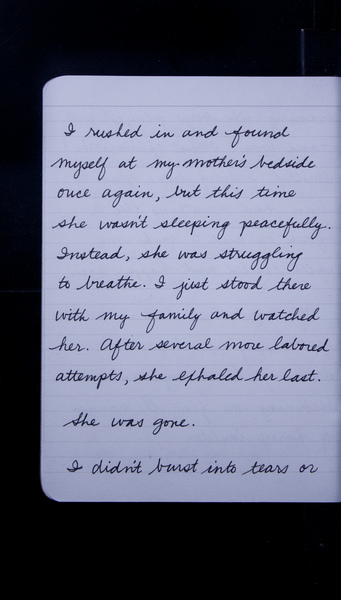 I rushed in and found
myself at my mother's bedside
once again, but this time
she wasn't sleeping peacefully.
Instead, she was struggling
to breathe. I just stood there
with my family and watched
her. After several more labored
attempts, she exhaled her last.
She was gone.
I didn't burst into tears or